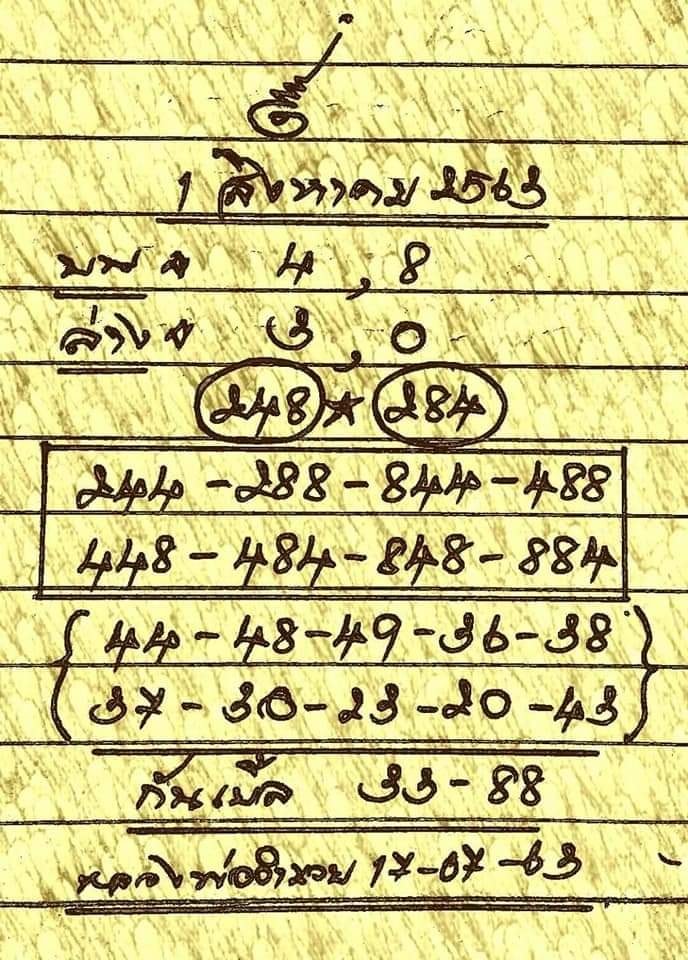 1 สิงหาคม 2563
บน * 4 , 8
ล่าง * 3 , 0
248 ★ 284
244 - 288 - 844 - 488
448 - 484 - 848 - 884
44 - 48 - 49 - 36 - 38
37 - 30 - 23 - 20 - 43
กันเบิ้ล 33 - 88
หลวงพ่ออำนวย 17-07-63